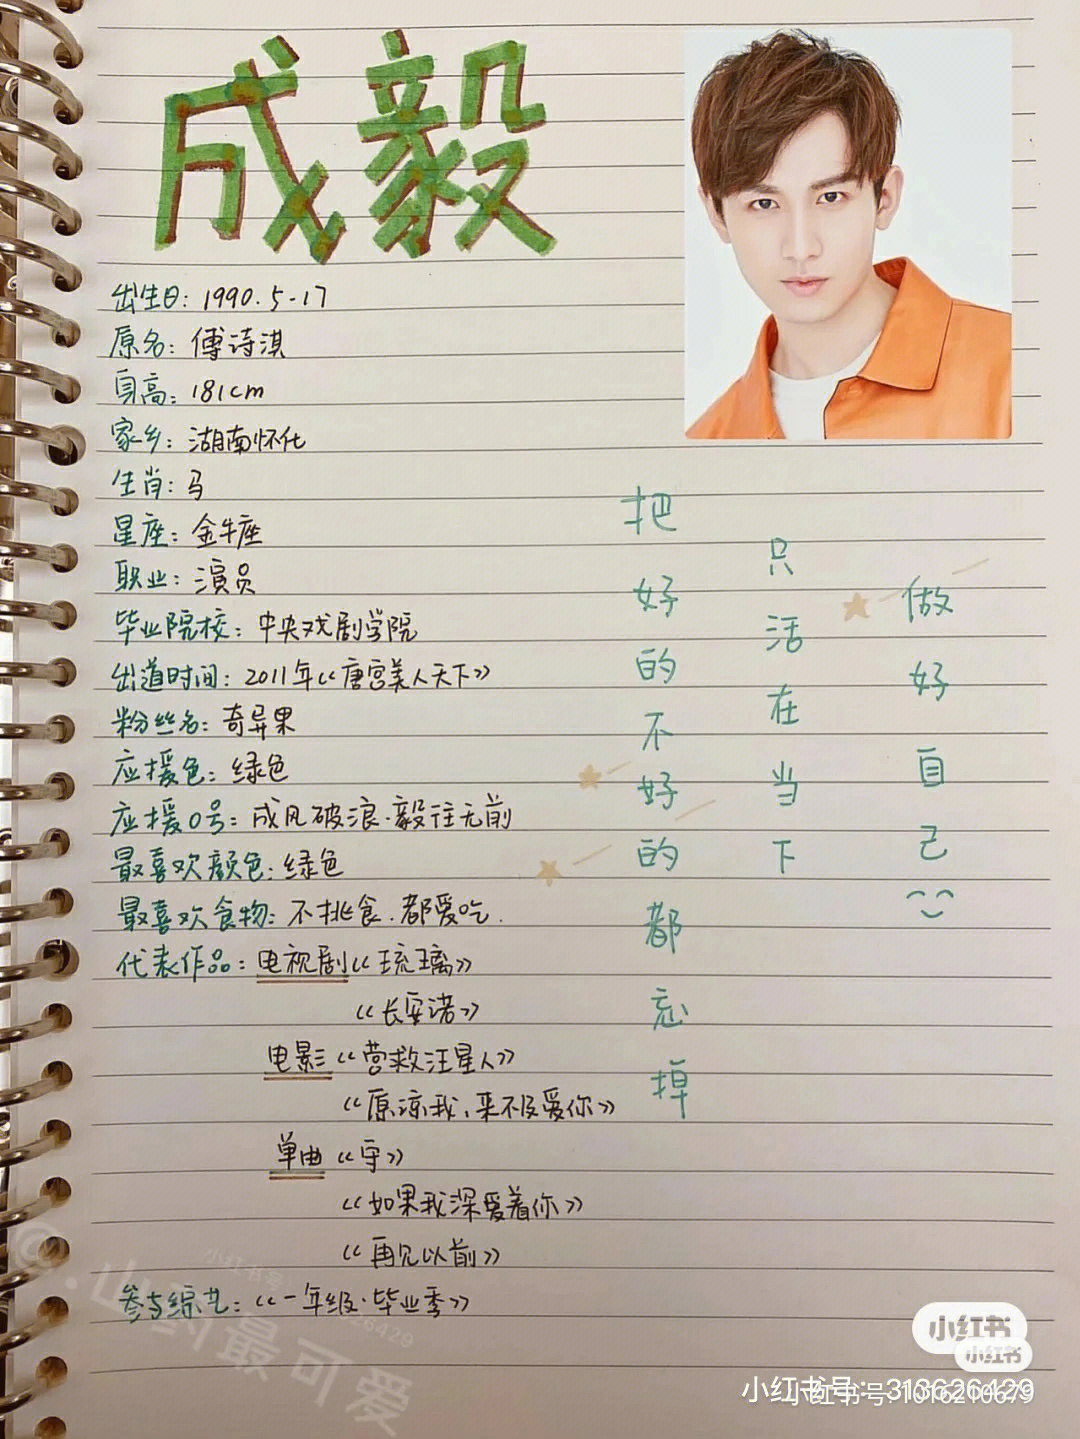 成毅
出生日：1990.5-17
原名：傅诗淇
身高：181cm
家乡：湖南怀化
生肖：马
星座：金牛座
职业：演员
毕业院校：中央戏剧学院
出道时间：2011年《唐宫美人天下》
粉丝名：奇异果
应援色：绿色
应援口号：成风破浪·毅往无前
最喜欢颜色：绿色
最喜欢食物：不挑食.都爱吃.
代表作品：电视剧《琉璃》
《长安诺》
电影《营救汪星人》
《原谅我、来不及爱你》
单曲《守》
《如果我深爱着你》
《再见以前》
参与综艺：《一年级·毕业季》
把好的不好的都忘掉
只活在当下
做好自己
小红书
小红书
小红书号：313626429
小红书号:1016210679
@.山药最可爱